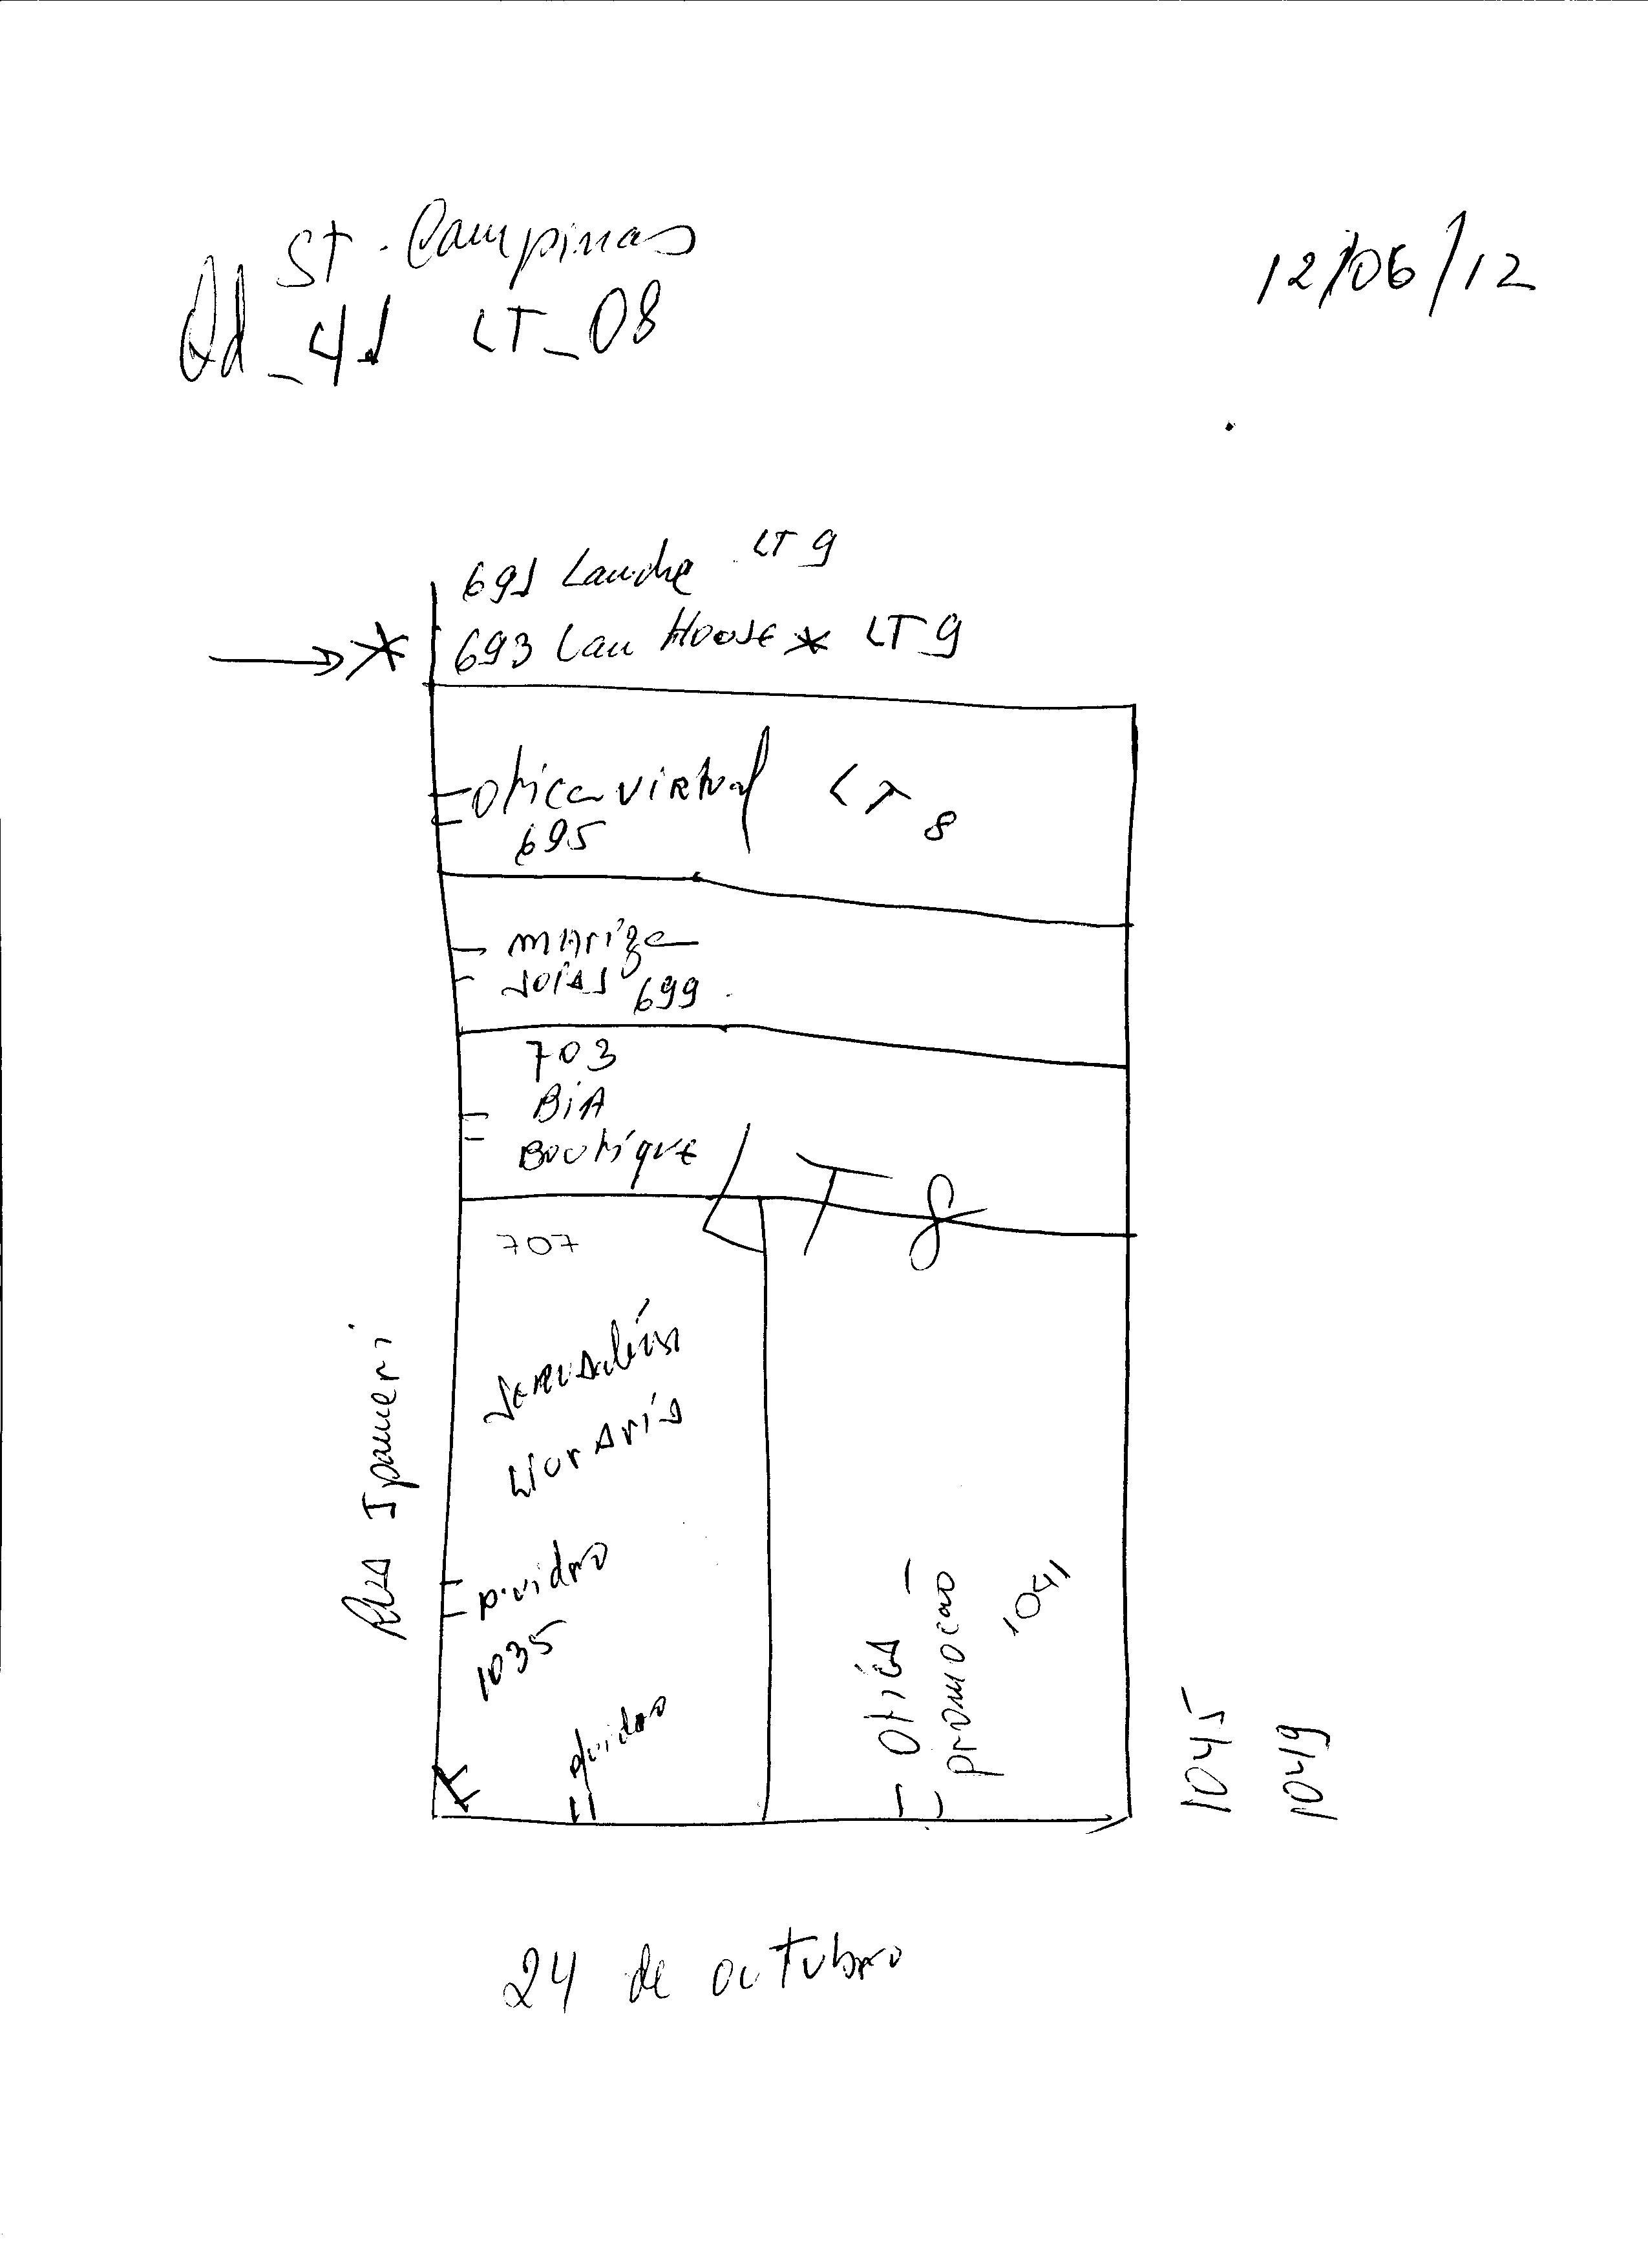 St. Campinas
12/06/12
Qd_41 LT_08
691 Lanche LT 9
693 Lan House * LT 9
otica virtual LT 8
695
mariza
Joias 699
703
BiA
Boutique
LT 8
707
Jerusalém
Livraria
p.vidro
1035
p.vidro
Rua Ipameri
otica
promoção
1041
1045
1049
24 de outubro